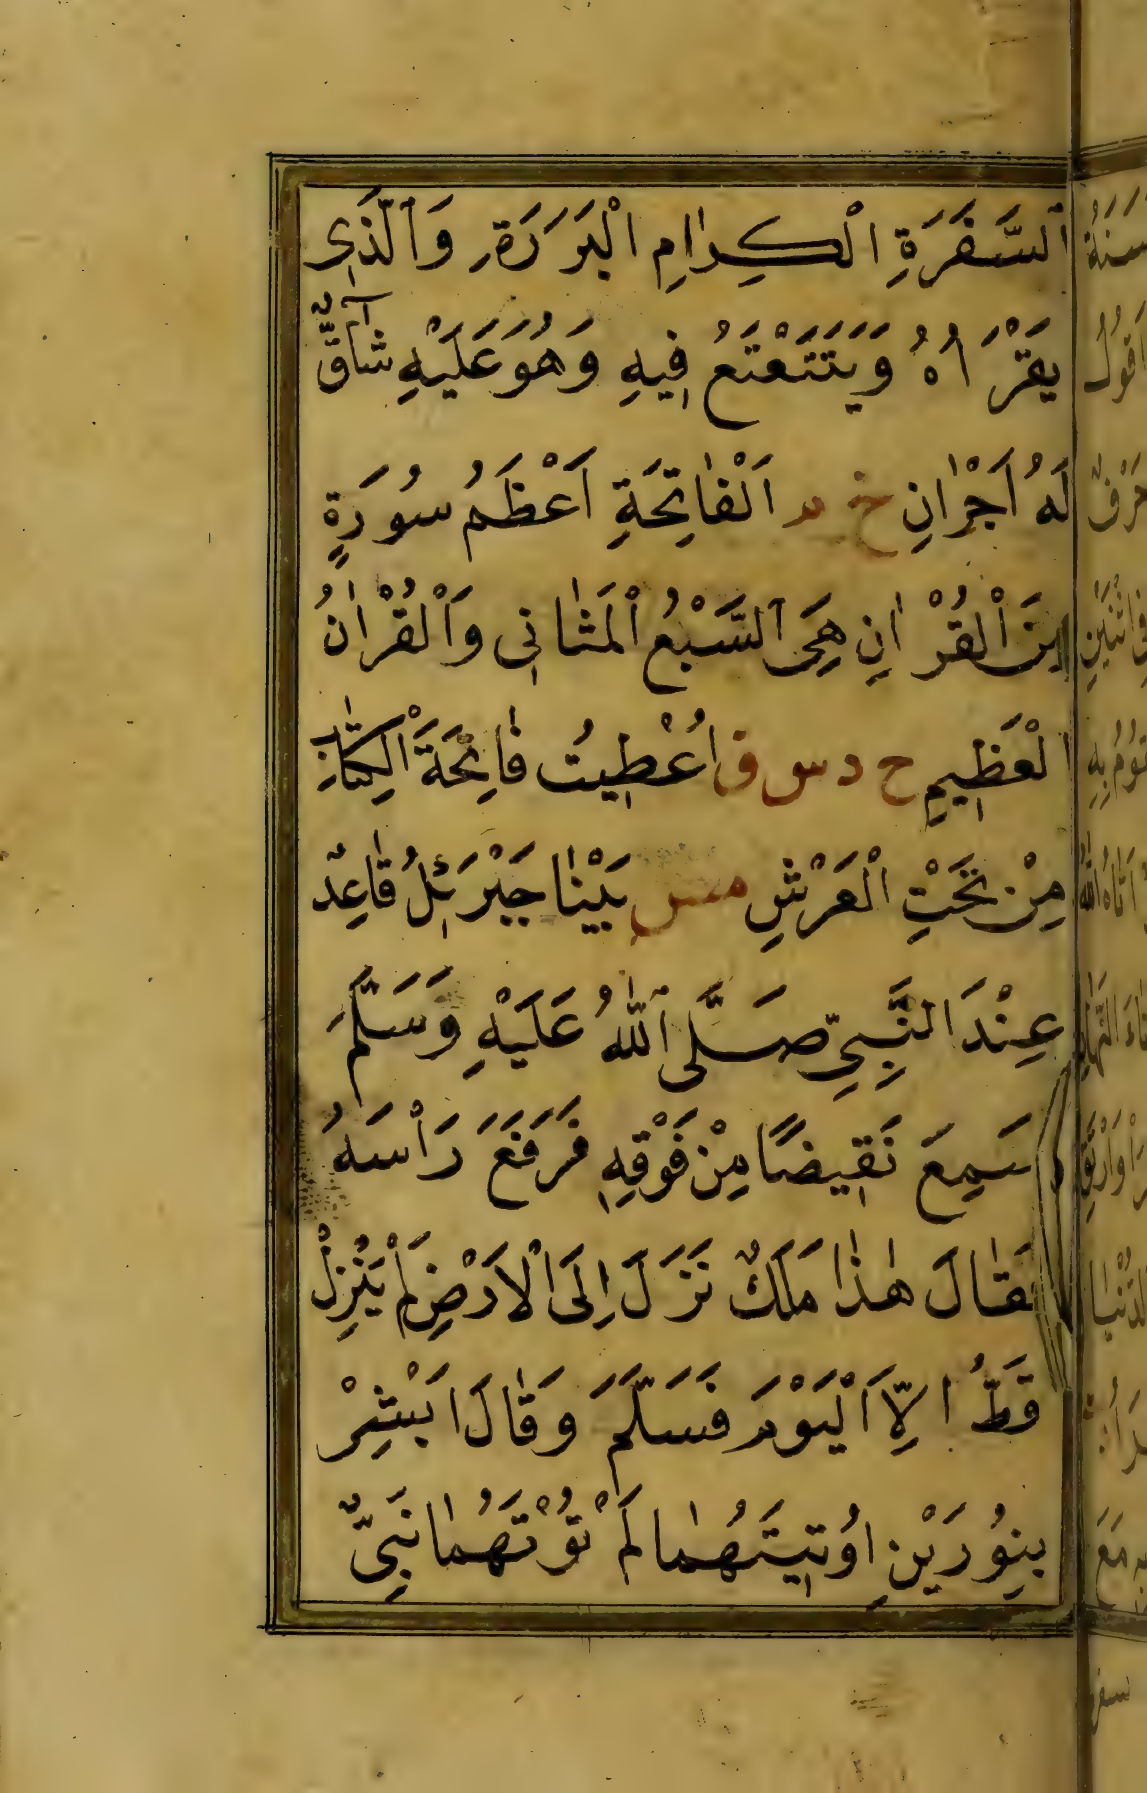 اَلسَّفَرَةِ الْكِرَامِ الْبَرَرَةِ وَالَّذِى
يَقْرَاُهُ وَيَتَتَعْتَعُ فِيهِ وَهُوَ عَلَيْهِ شَآقٌّ
لَهُ اَجْرَانِ خ م اَلْفَاتِحَةِ اَعْظَمُ سُورَةٍ
مِنَ الْقُرْاٰنِ هِىَ السَّبْعُ الْمَثَانِى وَالْقُرْاٰنُ
الْعَظِيمِ خ د س ق اُعْطِيتُ فَاتِحَةَ الْكِتَابِ
مِنْ تَحْتِ الْعَرْشِ مس بَيْنَا جَبْرَئِلُ قَاعِدٌ
عِنْدَ النَّبِىِّ صَلَّى اللّٰهُ عَلَيْهِ وَسَلَّمَ
سَمِعَ نَقِيضًا مِنْ فَوْقِهِ فَرَفَعَ رَاْسَهُ
فَقَالَ هٰذَا مَلَكٌ نَزَلَ اِلَى الْاَرْضِ لَمْ يَنْزِلْ
قَطُّ اِلَّا الْيَوْمَ فَسَلَّمَ وَقَالَ اَبْشِرْ
بِنُورَيْنِ اُوتِيتَهُمَا لَمْ تُؤْتَهُمَا نَبِىٌّ